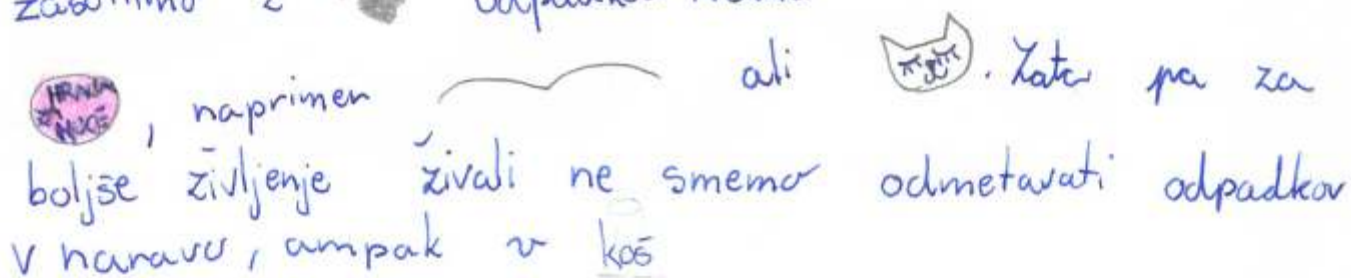 HRANA ZA MUCE
, naprimer ali . Zato pa za
boljše življenje živali ne smemo odmetavati odpadkov
v naravo, ampak v koš